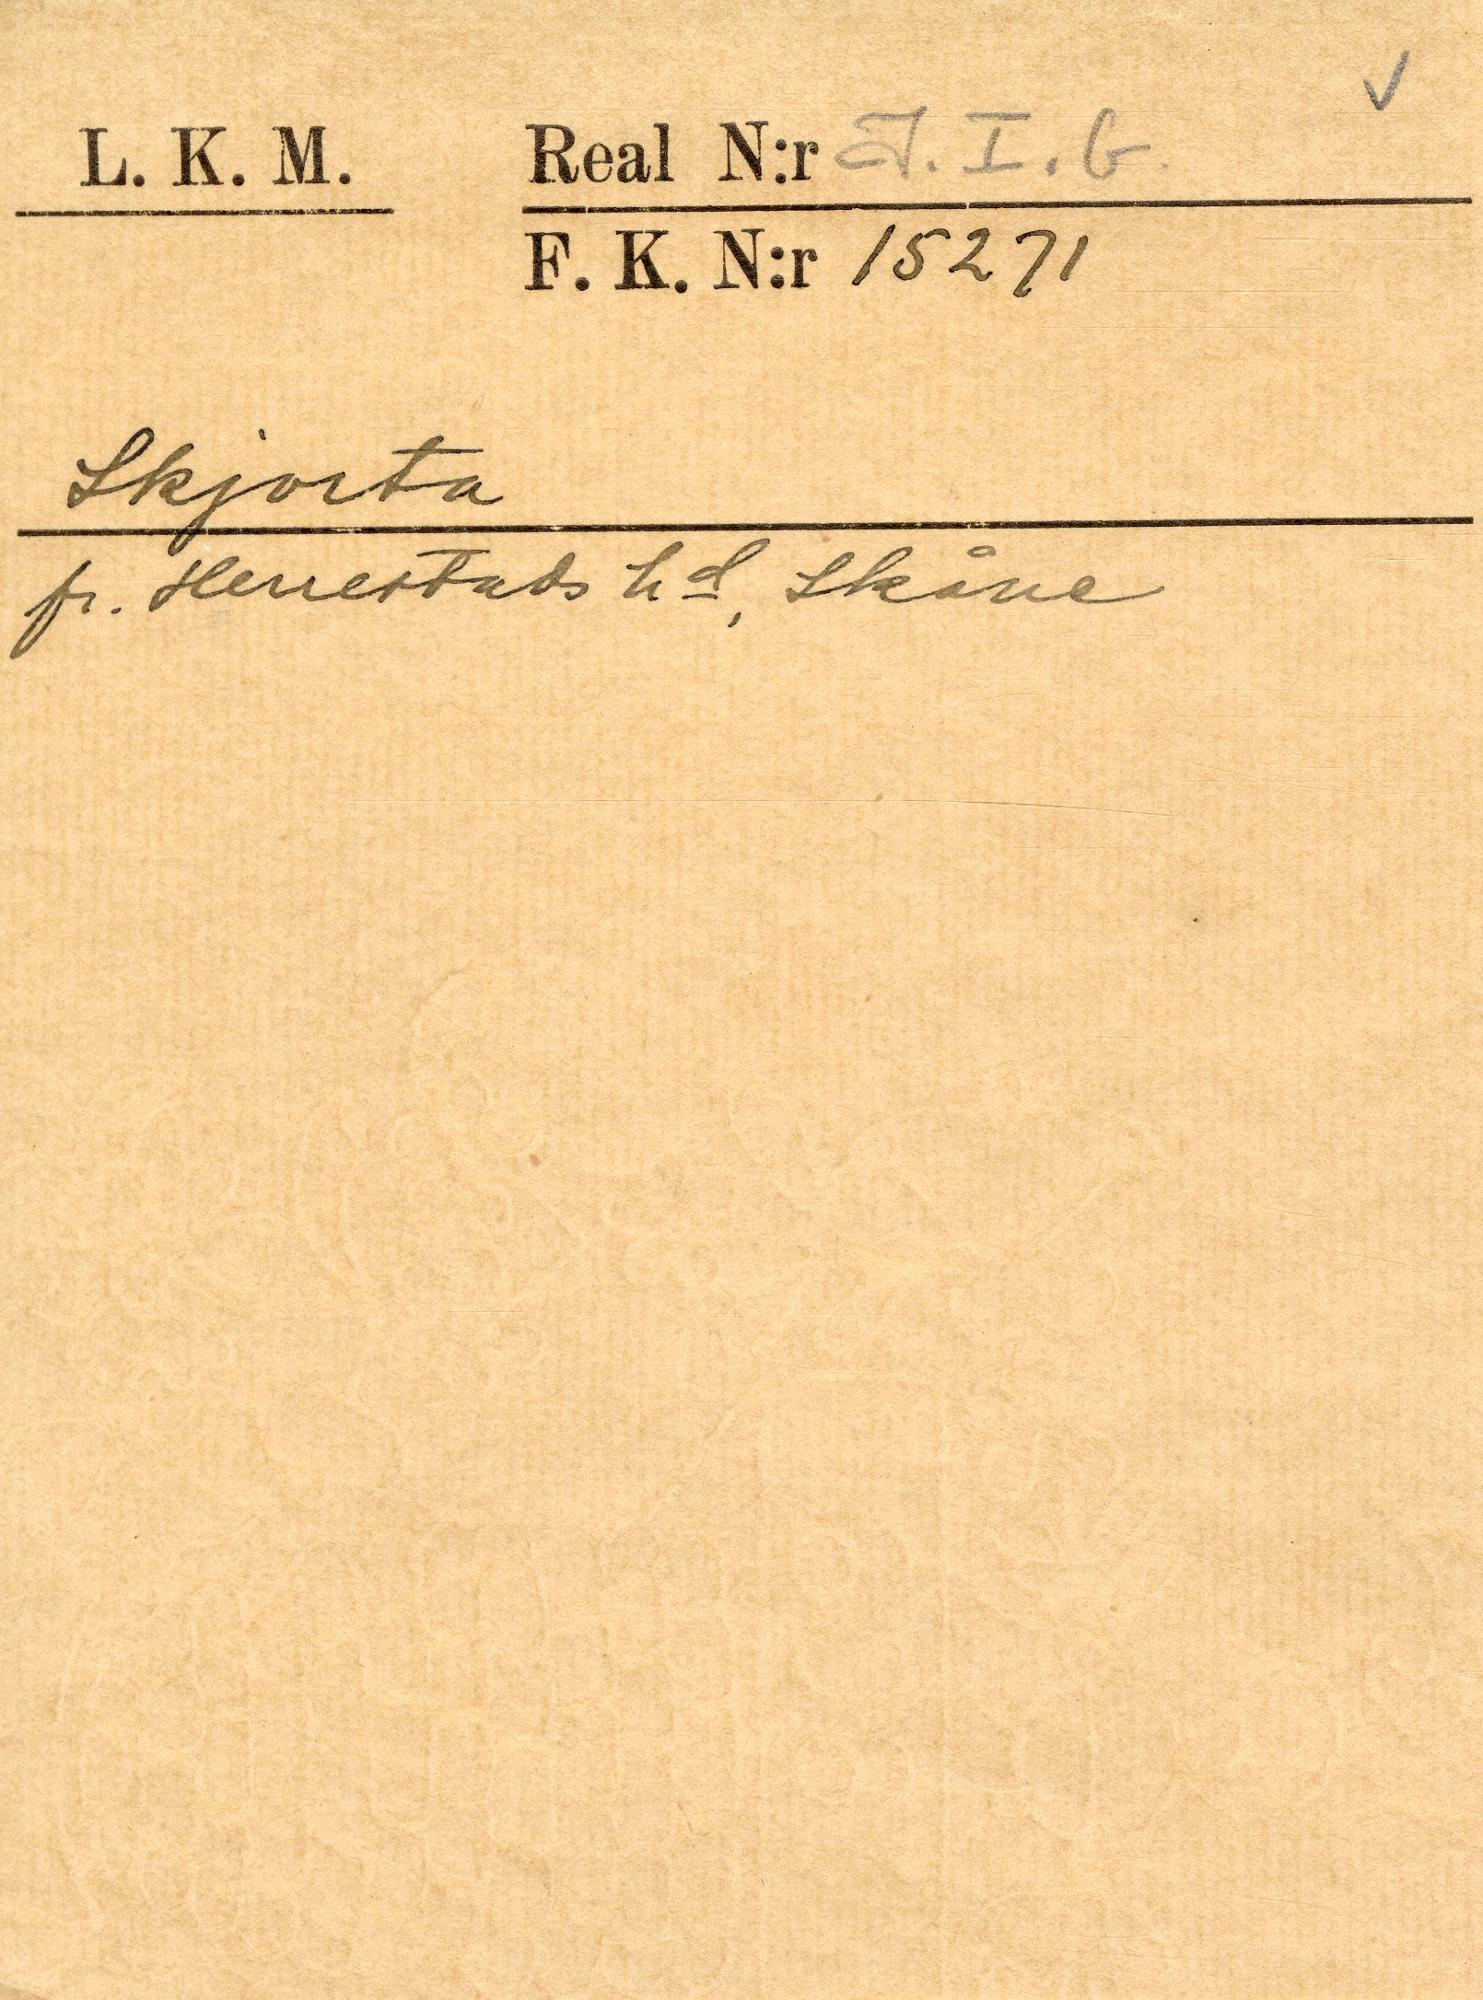 L. K. M. Real N:r J. I. b.
F. K. N:r 15271
Skjorta
fr. Herrestads hd, Skåne